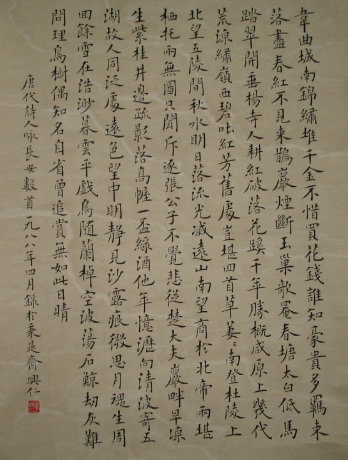 韋曲城南錦繡堆千金不惜買花錢誰知豪貴多羈束
落盡春紅不見來鸛巖煙斷玉巢欹罨春塘太白低馬
踏翠開垂楊寺人耕紅破落花蹊千年勝概咸原上幾代
荒涼繡嶺西碧吐紅芳舊處豈堪回首草萋萋南登杜陵上
北望五陵間秋水明日落流光滅遠山南望商於北帝兩堪
栖托兩無圖只聞斥逐張公子不覺悲從楚大夫巖畔早涼
生紫桂井邊疏影落高幢一盃綠酒他年憶瀝向清波寄五
湖故人同泛處遠色望中明靜見沙露痕微思月魂生周
回餘雪在浩渺暮雲平戲鳥隨蘭棹空波蕩石鯨劫灰難
問理島樹偶知名自省曾追賞無如此日晴
唐代詩人詠長安數首一九八八年四月錄於秦是齋興仁